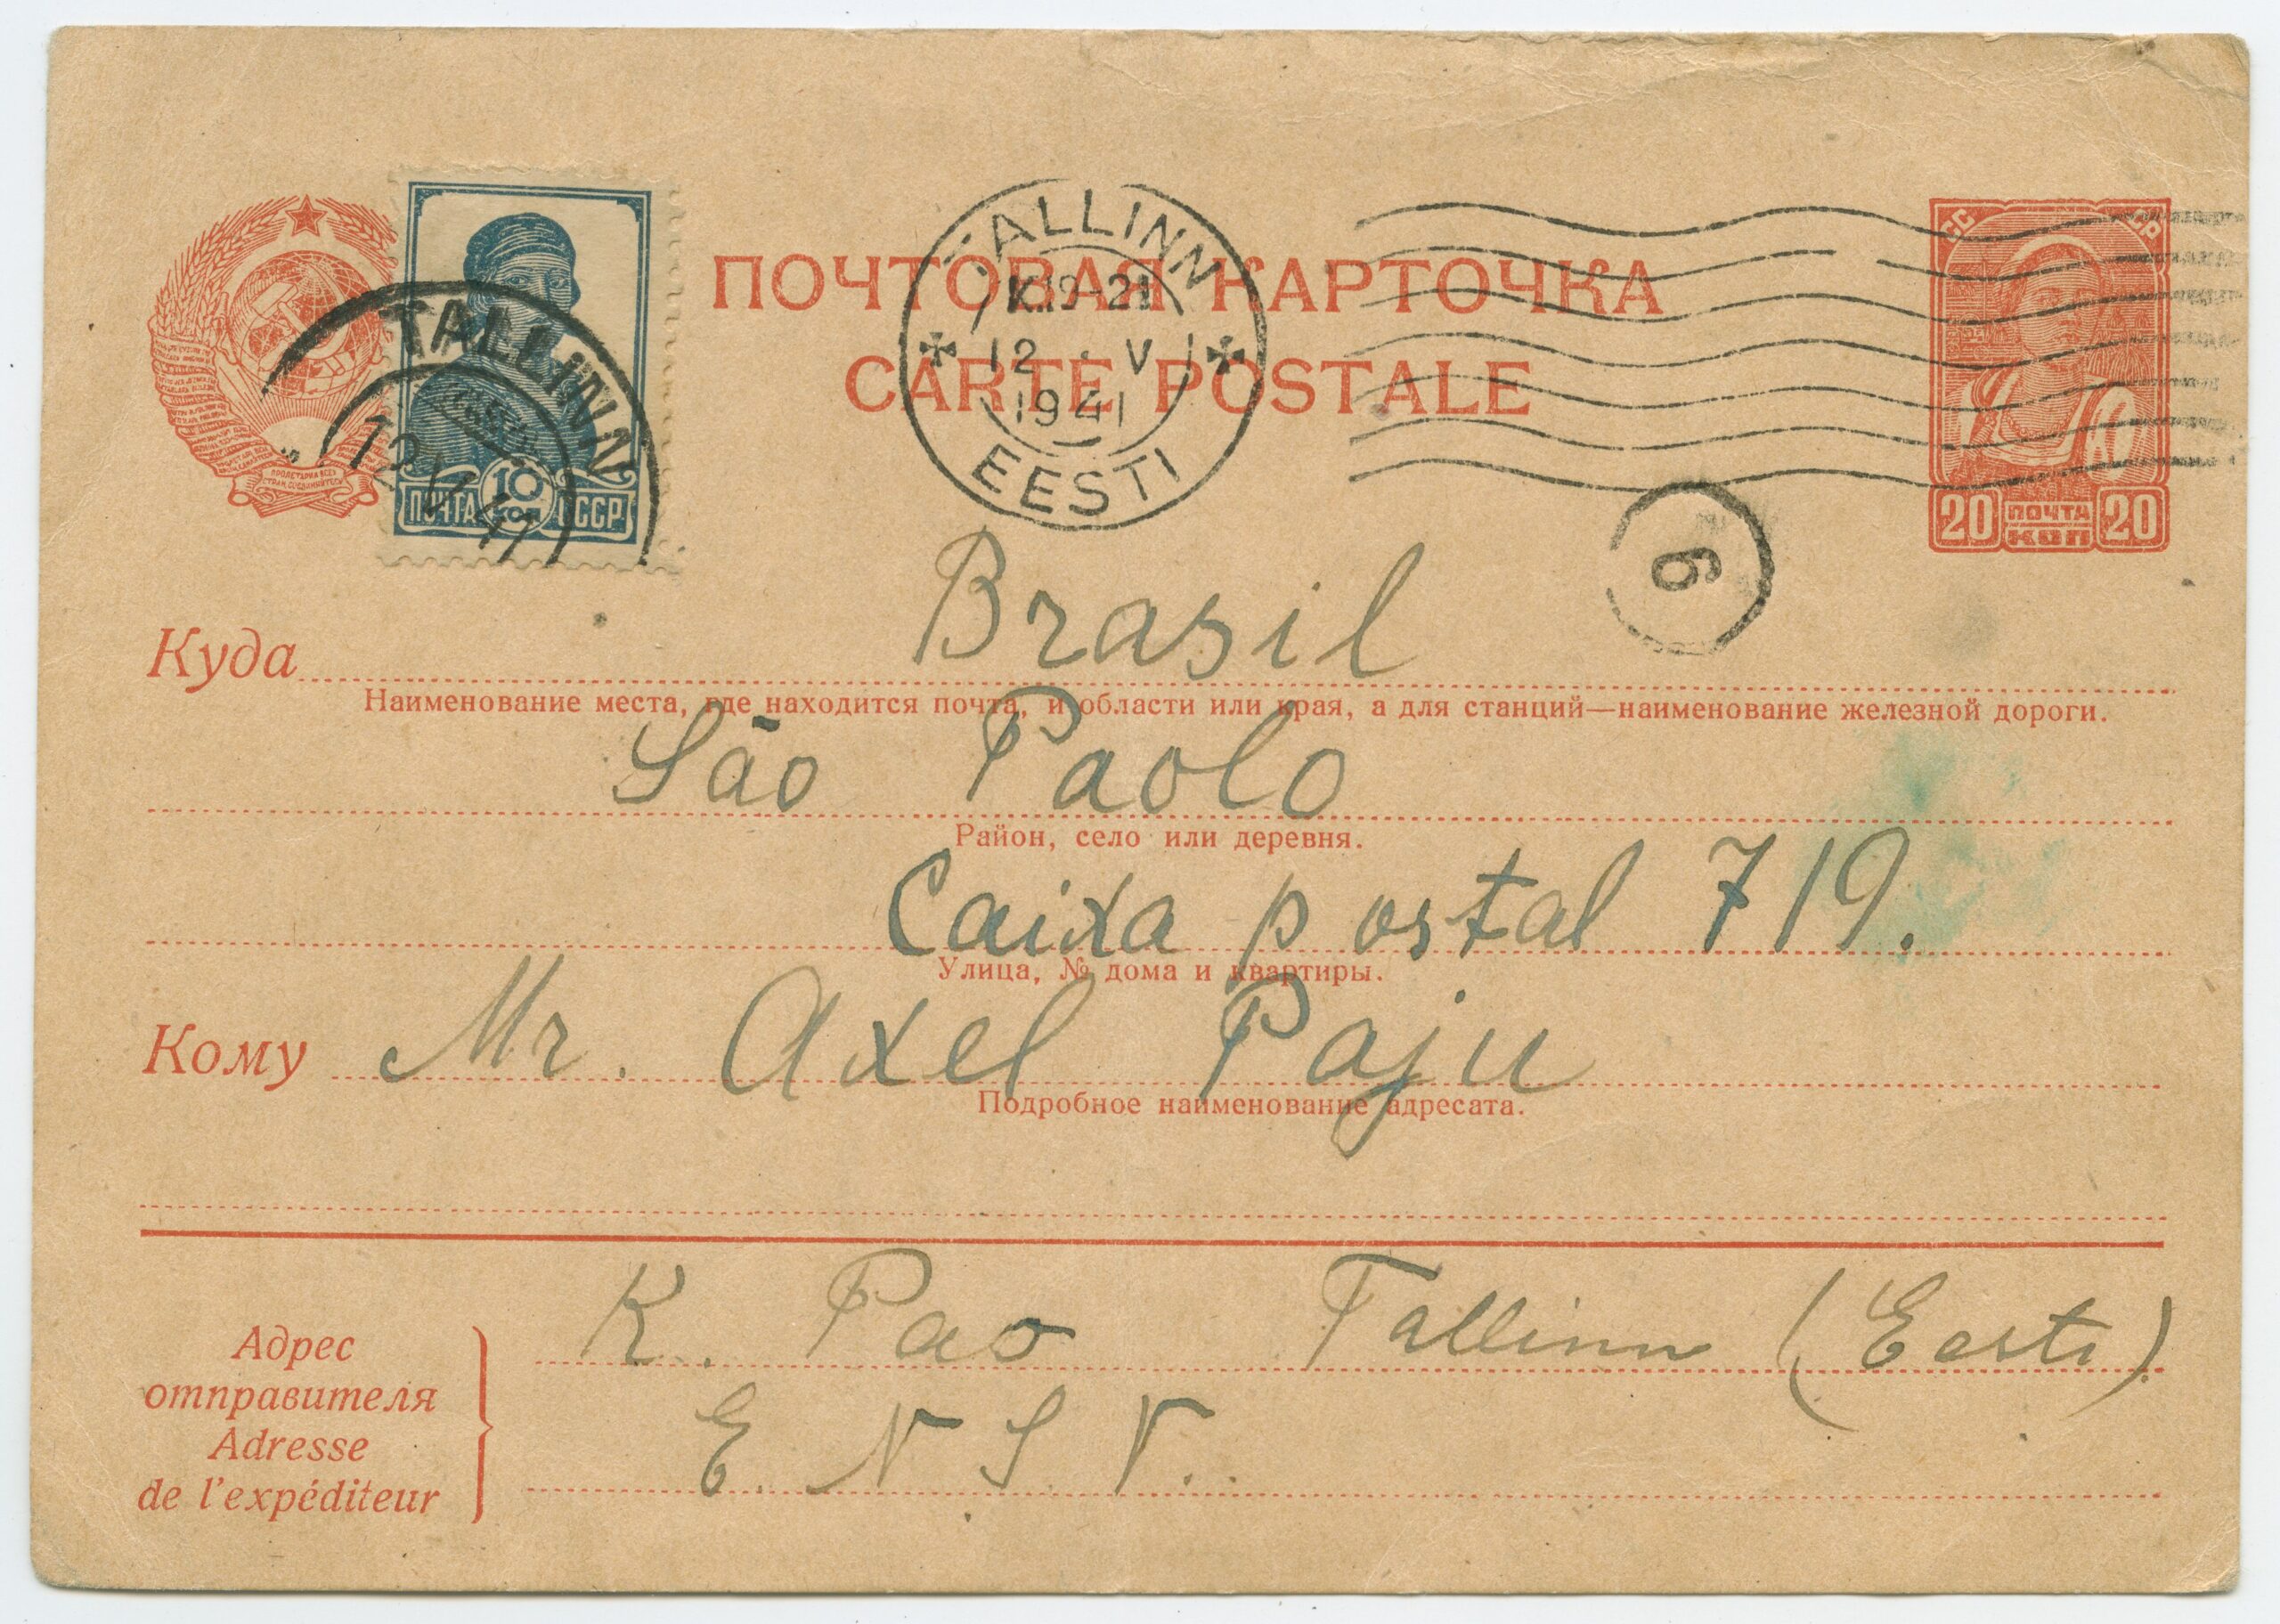 ПОЧТОВАЯ КАРТОЧКА
CARTE POSTALE
TALLINN
12 V 41
10
КОП
ПОЧТА СССР
ПРОЛЕТАРИИ ВСЕХ
СТРАН, СОЕДИНЯЙТЕСЬ
TALLINN
K.19-21
12 . V
1941
EESTI
СС СР
20 ПОЧТА КОП 20
6
Куда Brasil
Наименование места, где находится почта, и области или края, а для станций—наименование железной дороги.
São Paolo
Район, село или деревня.
Caixa postal 719.
Улица, № дома и квартиры.
Кому Mr. Axel Paju
Подробное наименование адресата.
Адрес
отправителя
Adresse
de l'expéditeur
K. Pao Tallinn (Eesti)
E. N S V.